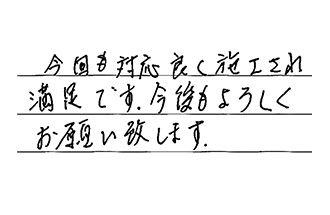 今回も対応良く施工され
満足です.今後もよろしく
お願い致します.